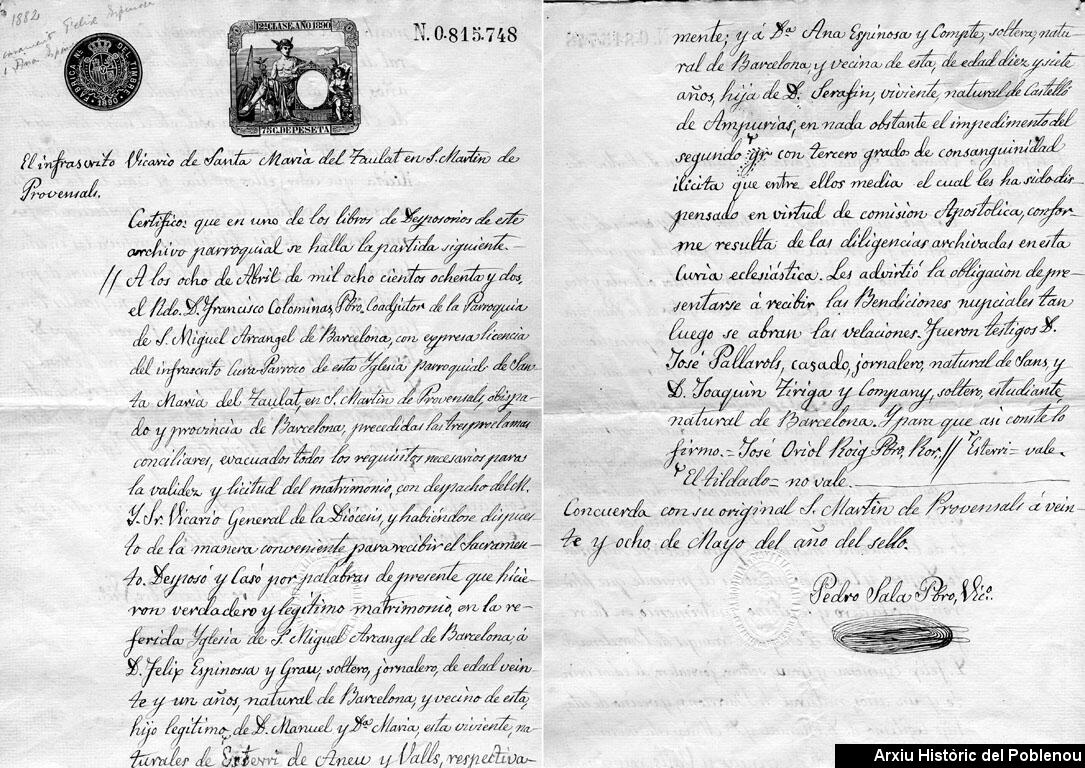 1882
Felix Espinosa
FABRICA NAL. DEL TIMBRE
1890
12ª CLASE. AÑO 1890
75 C. DE PESETA
N. 0.815.748
El infrascrito Vicario de Santa Maria del Taulat en S. Martin de
Provensals.
Certifico: que en uno de los libros de Desposorios de este
archivo parroquial se halla la partida siguiente.-
// A los ocho de Abril de mil ocho cientos ochenta y dos,
el Rdo. D. Francisco Colominas, Pbro, Coadjutor de la Parroquia
de S. Miguel Arcangel de Barcelona, con expresa licencia
del infrascrito Cura-Parroco de esta Yglesia parroquial de San-
ta Maria del Taulat, en S. Martin de Provensals, obispa-
do y provincia de Barcelona, precedidas las tres proclamas
conciliares, evacuados todos los requisitos necesarios para
la validez y licitud del matrimonio, con despacho del M.
Y. Sr. Vicario General de la Diócesis, y habiéndose dispues-
to de la manera conveniente para recibir el Sacramen-
to. Desposó y Casó por palabras de presente que hicie-
ron verdadero y legítimo matrimonio, en la re-
ferida Yglesia de S. Miguel Arcangel de Barcelona, á
D. Felix Espinossa y Grau, soltero, jornalero, de edad vein-
te y un años, natural de Barcelona, y vecino de esta,
hijo legítimo, de D. Manuel y Dª Maria, esta viviente, na-
turales de Esterri de Aneu y Valls, respectiva-
mente; y á Dª Ana Espinosa y Compte, soltera, natu-
ral de Barcelona, y vecina de esta, de edad diez y siete
años, hija de D. Serafin, viviente, natural de Castelló
de Ampurias, en nada obstante el impedimento del
segundo gr con tercero grado de consanguinidad
ilicita que entre ellos media el cual les ha sido dis-
pensado en virtud de comision Apostólica, confor-
me resulta de las diligencias archivadas en esta
Curia eclesiástica. Les advirtió la obligacion de pre-
sentarse á recibir las Bendiciones nupciales tan
luego se abran las velaciones. Fueron testigos D.
José Pallarols, casado, jornalero, natural de Sans, y
D. Joaquin Tiriga y Company, soltero, estudiante,
natural de Barcelona. Y para que asi conste lo
firmo.- José Oriol Roig Pbro, Ror. // Esterri = vale.
El tildado = no vale.
Concuerda con su original S. Martin de Provensals á vein-
te y ocho de Mayo del año del sello.
Pedro Sala Pbro, Vico.
Arxiu Històric del Poblenou